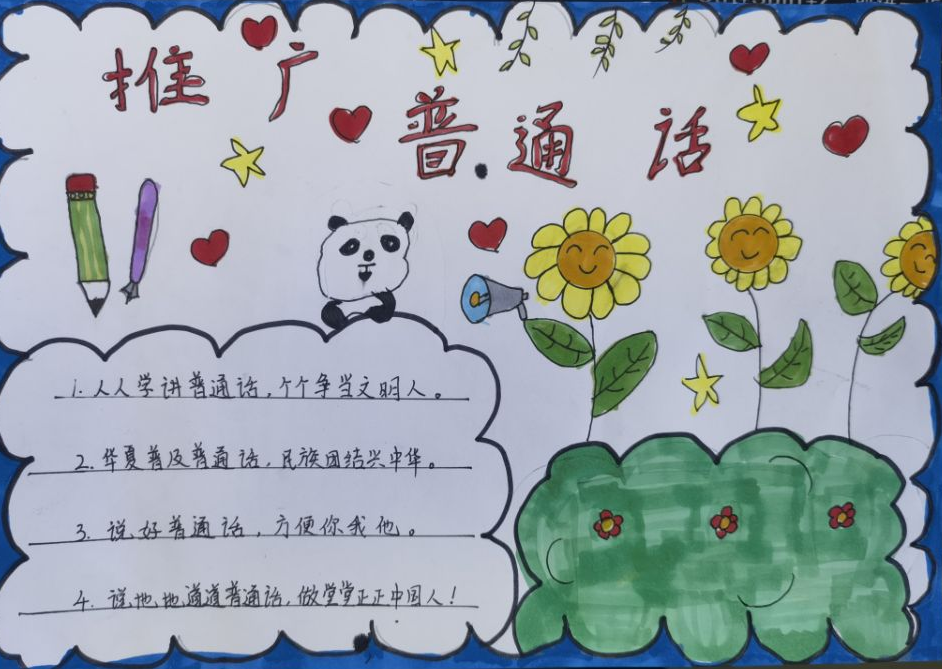 推广
普通话
1. 人人学讲普通话，个个争当文明人。
2. 华夏普及普通话，民族团结兴中华。
3. 说好普通话，方便你我他。
4. 说地地道道普通话，做堂堂正正中国人！